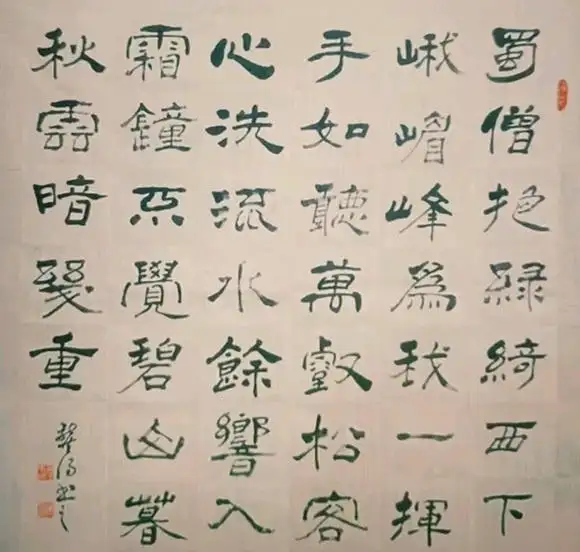 蜀僧抱緑綺西下
峨嵋峰爲我一揮
手如聽萬壑松客
心洗流水餘響入
霜鐘不覺碧山暮
秋雲暗幾重
書之